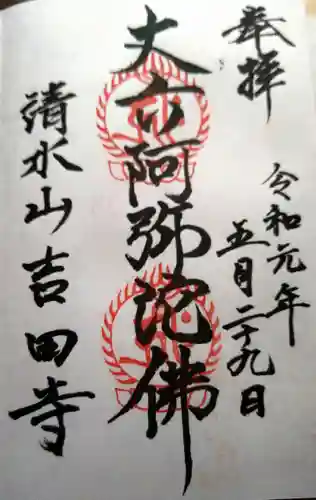 奉拝
令和元年
五月二十九日
大方阿弥陀佛
清水山吉田寺